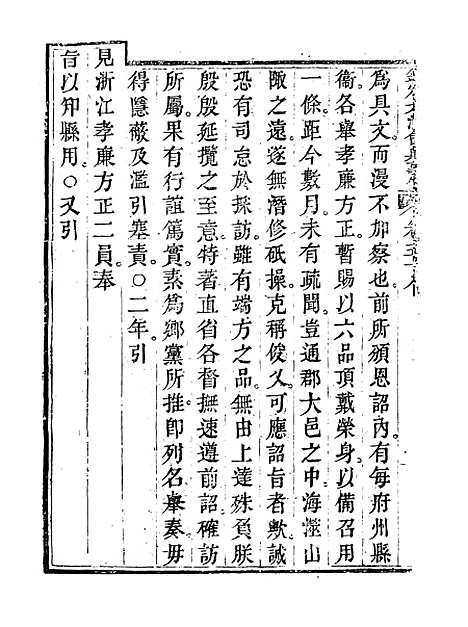 爲具文而漫不加察也前所頒恩詔內有每府州縣
衞各舉孝廉方正暫賜以六品頂戴榮身以備召用
一條距今數月未有疏聞豈通郡大邑之中海澨山
陬之遠遂無潛修砥操克稱俊乂可應詔旨者歟誠
恐有司怠於採訪雖有端方之品無由上達殊負朕
殷殷延攬之至意特著直省各督撫速遵前詔確訪
所屬果有行誼篤實素爲鄉黨所推卽列名舉奏毋
得隱蔽及濫引塞責○二年引
見浙江孝廉方正二員奉
旨以知縣用○又引